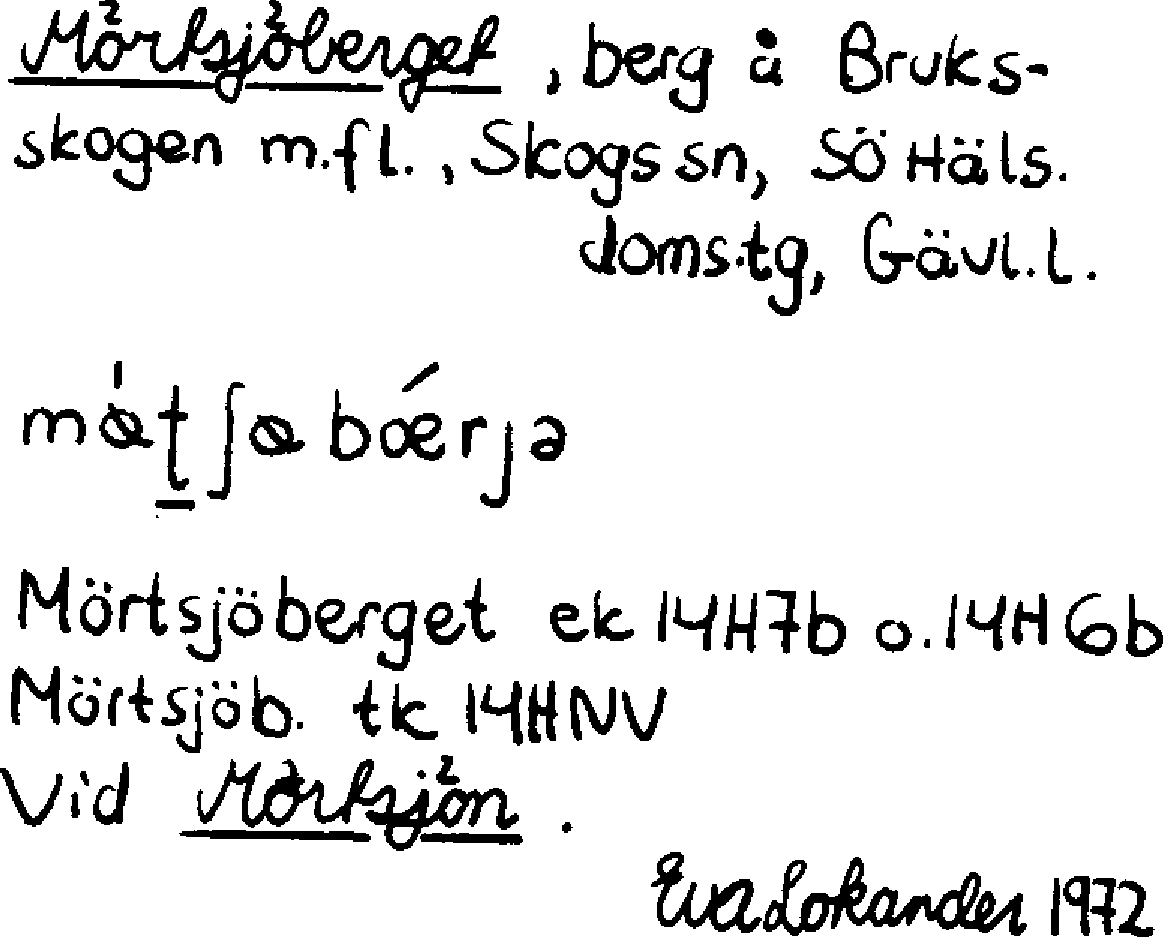 Mörtsjöberget, berg å Bruks-
skogen m.fl., Skogs sn, SÖ Häls.
doms.tg, Gävl.l.
mø̀t̠ʃøbǽrjə
Mörtsjöberget ek 14H7b o. 14H6b
Mörtsjöb. tk 14HNV
Vid Mörtsjön.
Eva Lokander 1972